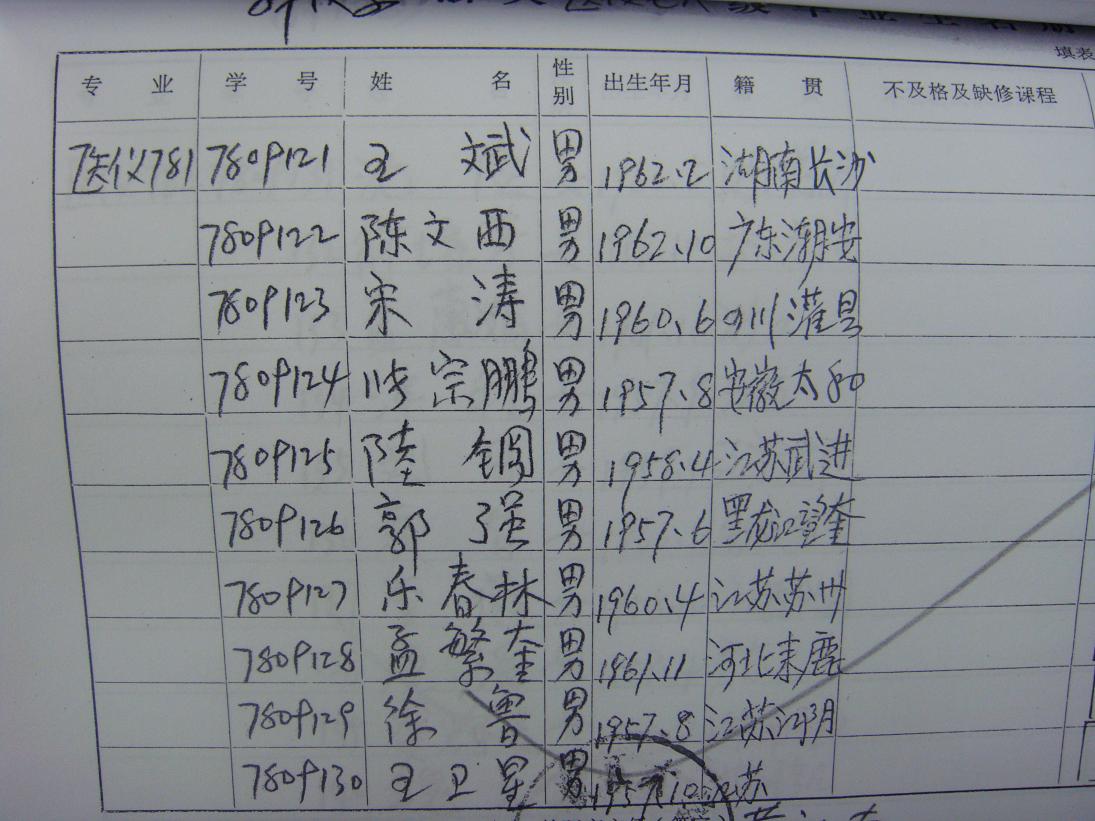 填表
专业 学号 姓名 性别 出生年月 籍贯 不及格及缺修课程
医仪781 7809121 王斌 男 1962.2 湖南长沙
7809122 陈文西 男 1962.10 广东潮安
7809123 宋涛 男 1960.6 四川灌县
7809124 张宗鹏 男 1957.8 安徽太和
7809125 陆钢 男 1958.4 江苏武进
7809126 郭强 男 1957.6 黑龙江望奎
7809127 乐春林 男 1960.4 江苏苏州
7809128 孟繁奎 男 1961.11 河北束鹿
7809129 徐鲁 男 1957.8 江苏江阴
7809130 王卫星 男 1957.10 江苏